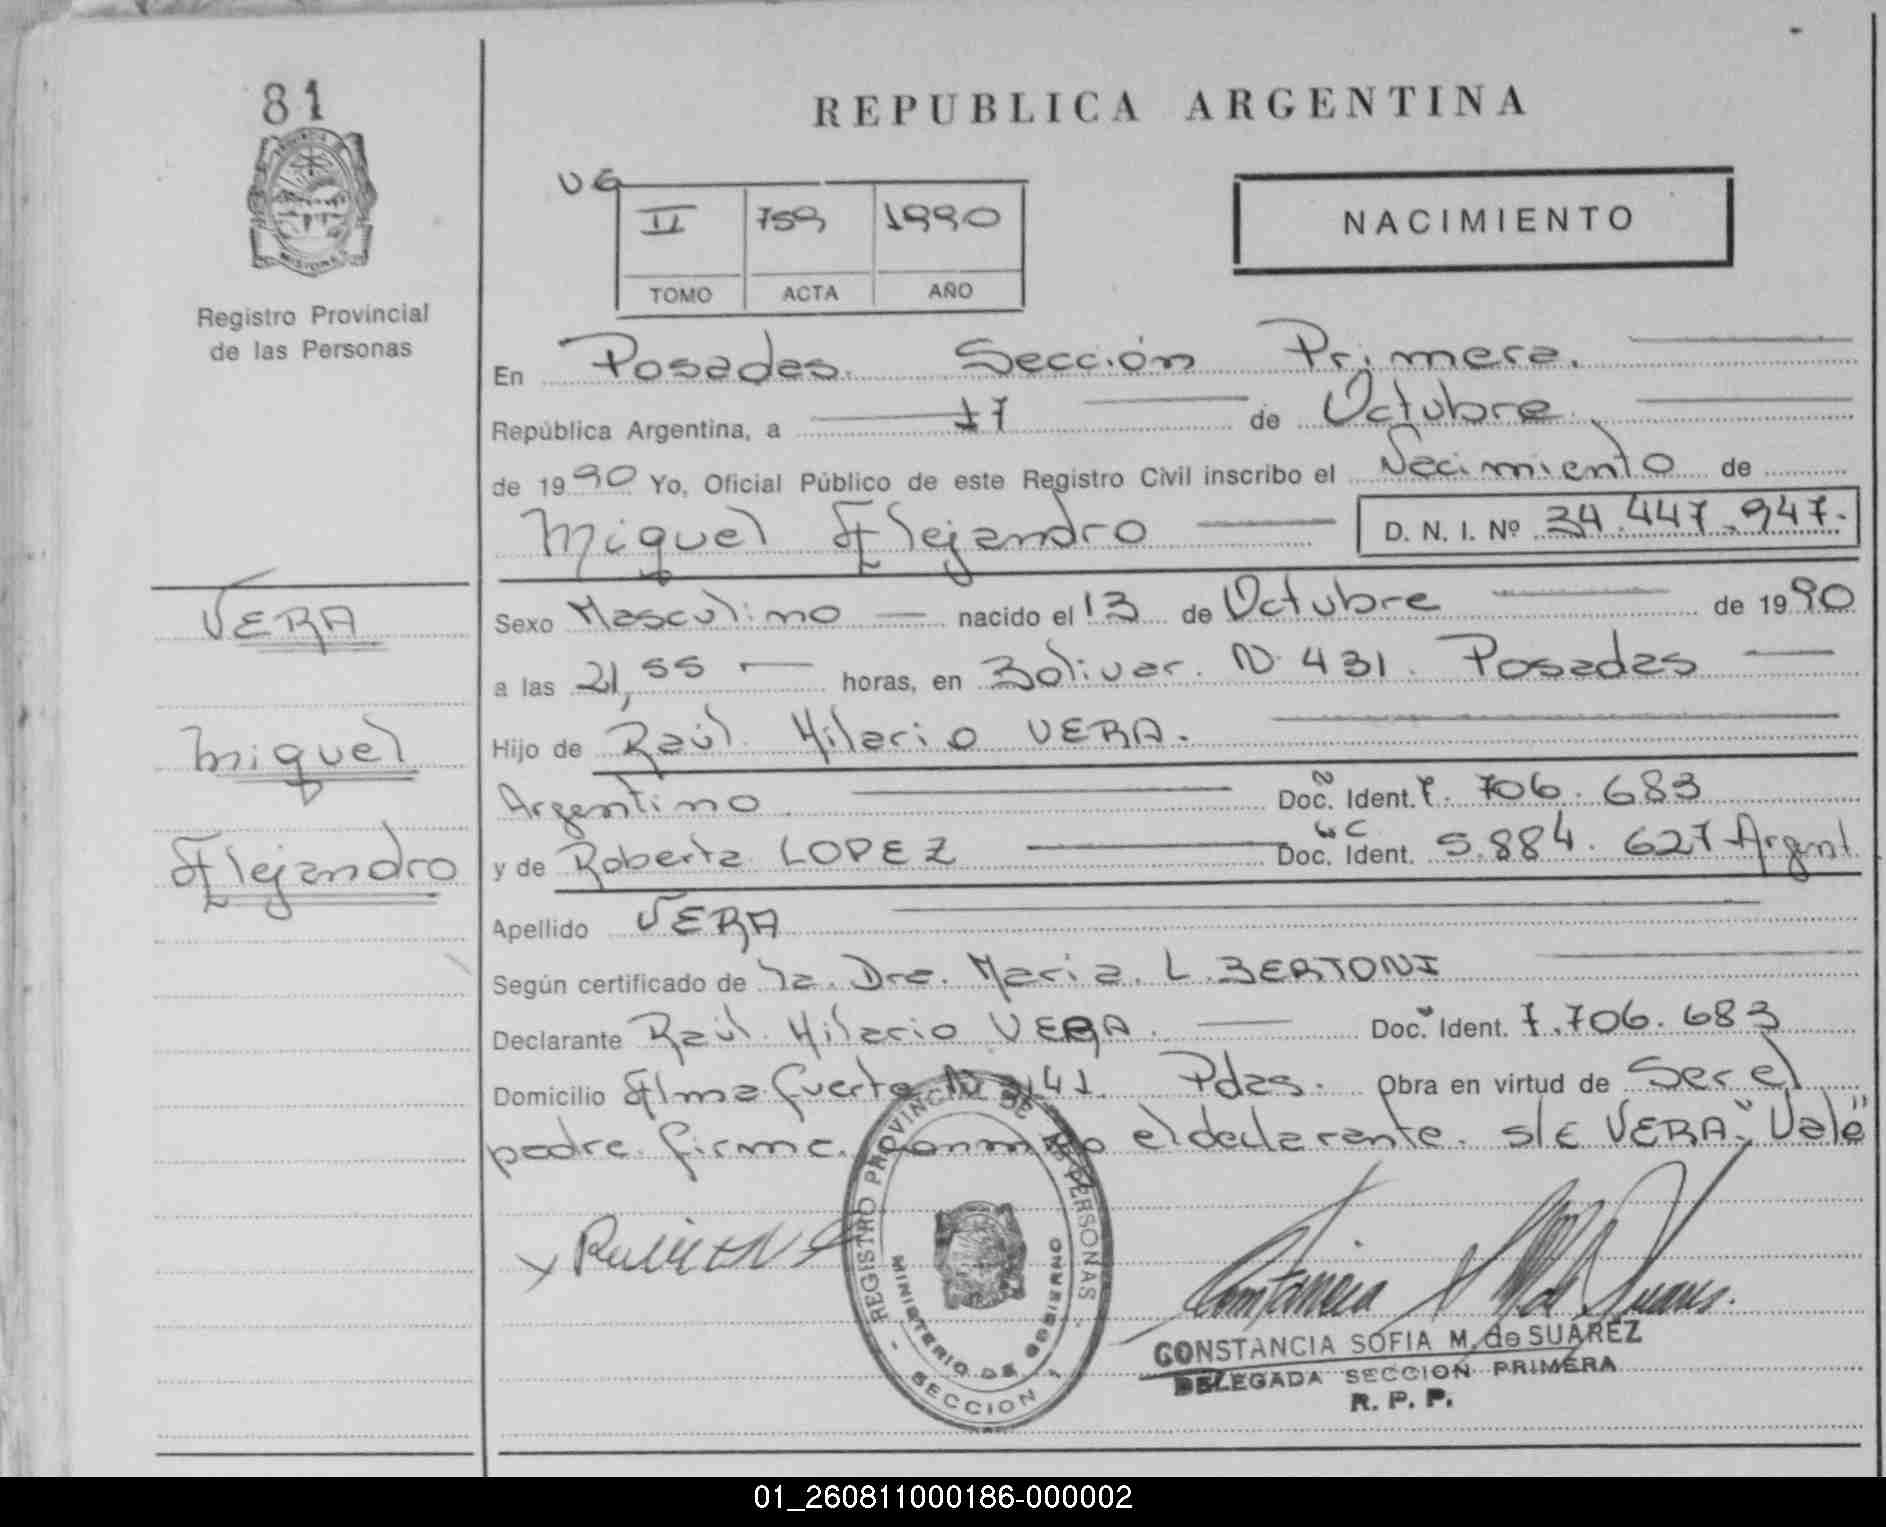 81
REPUBLICA ARGENTINA
PROVINCIA
MISIONES
Registro Provincial
de las Personas
UG
II 759 1990
TOMO ACTA AÑO
NACIMIENTO
En Posadas. Sección Primera.
República Argentina, a 17 de Octubre
de 1990 Yo, Oficial Público de este Registro Civil inscribo el Nacimiento de
Miguel Alejandro D. N. I. Nº 34.447.947.
VERA
Miguel
Alejandro
Sexo Masculino nacido el 13 de Octubre de 1990
a las 21,55 horas, en Bolivar. N 431. Posadas
Hijo de Raúl Hilario VERA.
Argentino Doc. Ident. 7.706.683
y de Roberta LOPEZ Doc. Ident. 5.884.627 Argent.
Apellido VERA
Según certificado de la Dra. Maria L. BERTONI
Declarante Raúl Hilario VERA. Doc. Ident. 7.706.683
Domicilio Almafuerte N 41 Pdas. Obra en virtud de Ser el
padre. firma conmigo el declarante. s/c VERA "Vale"
REGISTRO PROVINCIAL DE LAS PERSONAS
MINISTERIO DE GOBIERNO
- SECCION 1 -
CONSTANCIA SOFIA M. de SUAREZ
DELEGADA SECCION PRIMERA
R. P. P.
01_260811000186-000002